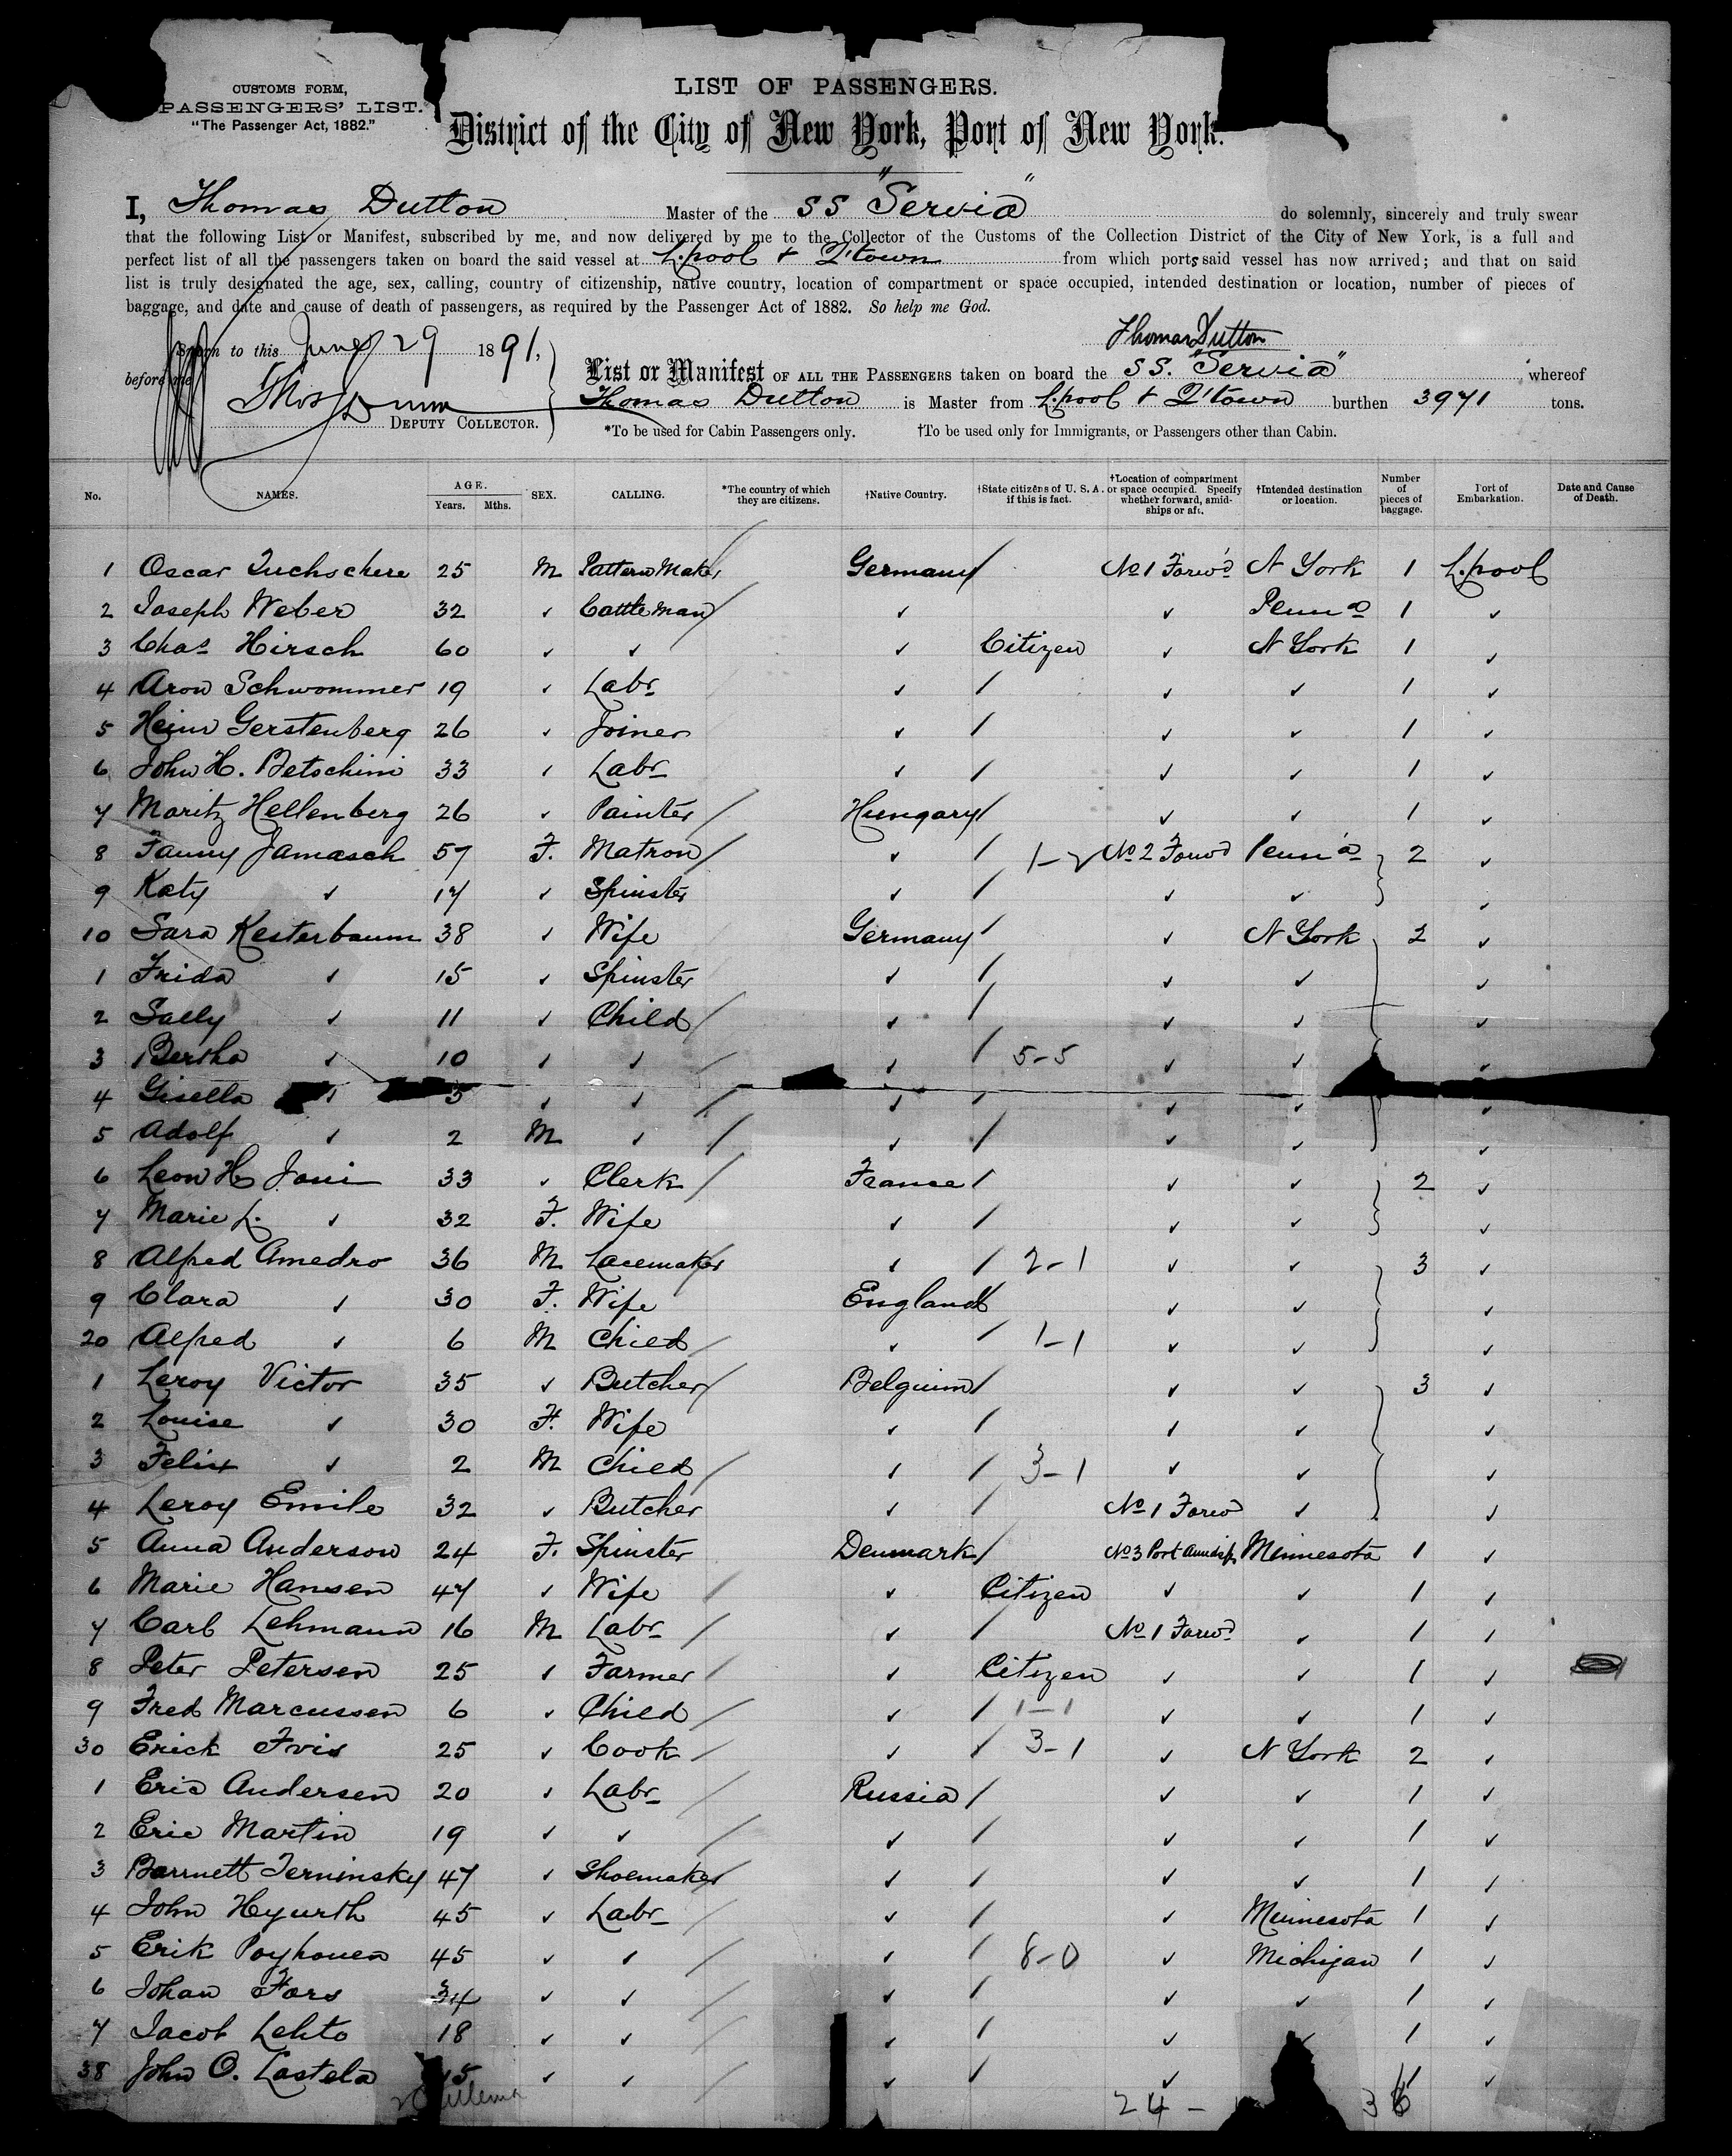 CUSTOMS FORM,
PASSENGERS' LIST.
"The Passenger Act, 1882."
LIST OF PASSENGERS.
District of the City of New York, Port of New York.
I, Thomas Dutton Master of the SS "Servia" do solemnly, sincerely and truly swear
that the following List or Manifest, subscribed by me, and now delivered by me to the Collector of the Customs of the Collection District of the City of New York, is a full and
perfect list of all the passengers taken on board the said vessel at L.pool & Q'town from which ports said vessel has now arrived; and that on said
list is truly designated the age, sex, calling, country of citizenship, native country, location of compartment or space occupied, intended destination or location, number of pieces of
baggage, and date and cause of death of passengers, as required by the Passenger Act of 1882. So help me God.
Thomas Dutton
Sworn to this June 29 1891,
before me
Thos Dunn
DEPUTY COLLECTOR.
List or Manifest OF ALL THE PASSENGERS taken on board the SS. "Servia" whereof
Thomas Dutton is Master from L.pool & Q'town burthen 3971 tons.
*To be used for Cabin Passengers only. †To be used only for Immigrants, or Passengers other than Cabin.
No. NAMES. AGE. Years. Mths. SEX. CALLING. *The country of which they are citizens. †Native Country. †State citizens of U. S. A. if this is fact. †Location of compartment or space occupied. Specify whether forward, amidships or aft. †Intended destination or location. Number of pieces of baggage. Port of Embarkation. Date and Cause of Death.
1 Oscar Tuchschere 25 M Pattern Maker / Germany / No 1 Forwd N York 1 L.pool
2 Joseph Weber 32 ✓ Cattle Man / ✓ ✓ Penna 1 ✓
3 Chas Hirsch 60 ✓ ✓ ✓ Citizen ✓ N York 1 ✓
4 Aron Schwommer 19 ✓ Labr ✓ / ✓ ✓ 1 ✓
5 Heinr Gerstenberg 26 ✓ Joiner ✓ / ✓ ✓ 1 ✓
6 John H. Betschini 33 ✓ Labr ✓ / ✓ ✓ 1 ✓
7 Moritz Hellenberg 26 ✓ Painter / Hungary / ✓ ✓ 1 ✓
8 Fanny Jamasch 57 F. Matron / ✓ / 1-2 No 2 Forwd Penna 2 ✓
9 Katy ✓ 17 ✓ Spinster ✓ / ✓ ✓ ✓
10 Sara Kesterbaum 38 ✓ Wife Germany / ✓ N York 2 ✓
1 Frida ✓ 15 ✓ Spinster ✓ / ✓ ✓ ✓
2 Sally ✓ 11 ✓ Child / ✓ / ✓ ✓ ✓
3 Bertha ✓ 10 ✓ ✓ / ✓ / 5-5 ✓ ✓ ✓
4 Gisella ✓ 3 ✓ ✓ / ✓ / ✓ ✓ ✓
5 Adolf ✓ 2 M ✓ / ✓ / ✓ ✓ ✓
6 Leon H Joni 33 ✓ Clerk / France / ✓ ✓ 2 ✓
7 Marie L. ✓ 32 F. Wife ✓ / ✓ ✓ ✓
8 Alfred Amedro 36 M Lacemaker / ✓ / 2-1 ✓ ✓ 3 ✓
9 Clara ✓ 30 F. Wife England / ✓ ✓ ✓
20 Alfred ✓ 6 M Child / ✓ / 1-1 ✓ ✓ ✓
1 Leroy Victor 35 ✓ Butcher / Belguim / ✓ ✓ 3 ✓
2 Louise ✓ 30 F. Wife ✓ / ✓ ✓ ✓
3 Felix ✓ 2 M Child / ✓ / 3-1 ✓ ✓ ✓
4 Leroy Emile 32 ✓ Butcher ✓ / No 1 Forwd ✓ ✓
5 Anna Anderson 24 F. Spinster Denmark / No 3 Port Amidsp Minnesota 1 ✓
6 Marie Hansen 47 ✓ Wife / ✓ Citizen ✓ ✓ 1 ✓
7 Carl Lehmann 16 M Labr / ✓ / No 1 Forwd ✓ 1 ✓
8 Peter Petersen 25 ✓ Farmer / ✓ Citizen ✓ ✓ 1 ✓
9 Fred Marcussen 6 ✓ Child / ✓ / 1-1 ✓ ✓ 1 ✓
30 Erick Fris 25 ✓ Cook / ✓ / 3-1 ✓ N York 2 ✓
1 Eric Andersen 20 ✓ Labr / Russia / ✓ ✓ 1 ✓
2 Eric Martin 19 ✓ ✓ / ✓ / ✓ ✓ 1 ✓
3 Barnett Terninsky 47 ✓ Shoemaker / ✓ / ✓ ✓ 1 ✓
4 John Hyurth 45 ✓ Labr / ✓ / ✓ Minnesota 1 ✓
5 Erik Poyhonen 45 ✓ ✓ / ✓ / 8-0 ✓ Michigan 1 ✓
6 Johan Fors 34 ✓ ✓ / ✓ / ✓ ✓ 1 ✓
7 Jacob Lehto 18 ✓ ✓ / ✓ / ✓ ✓ 1 ✓
38 John O. Lastela 15 ✓ ✓ / ✓ / ✓ 1 ✓
24 - 36